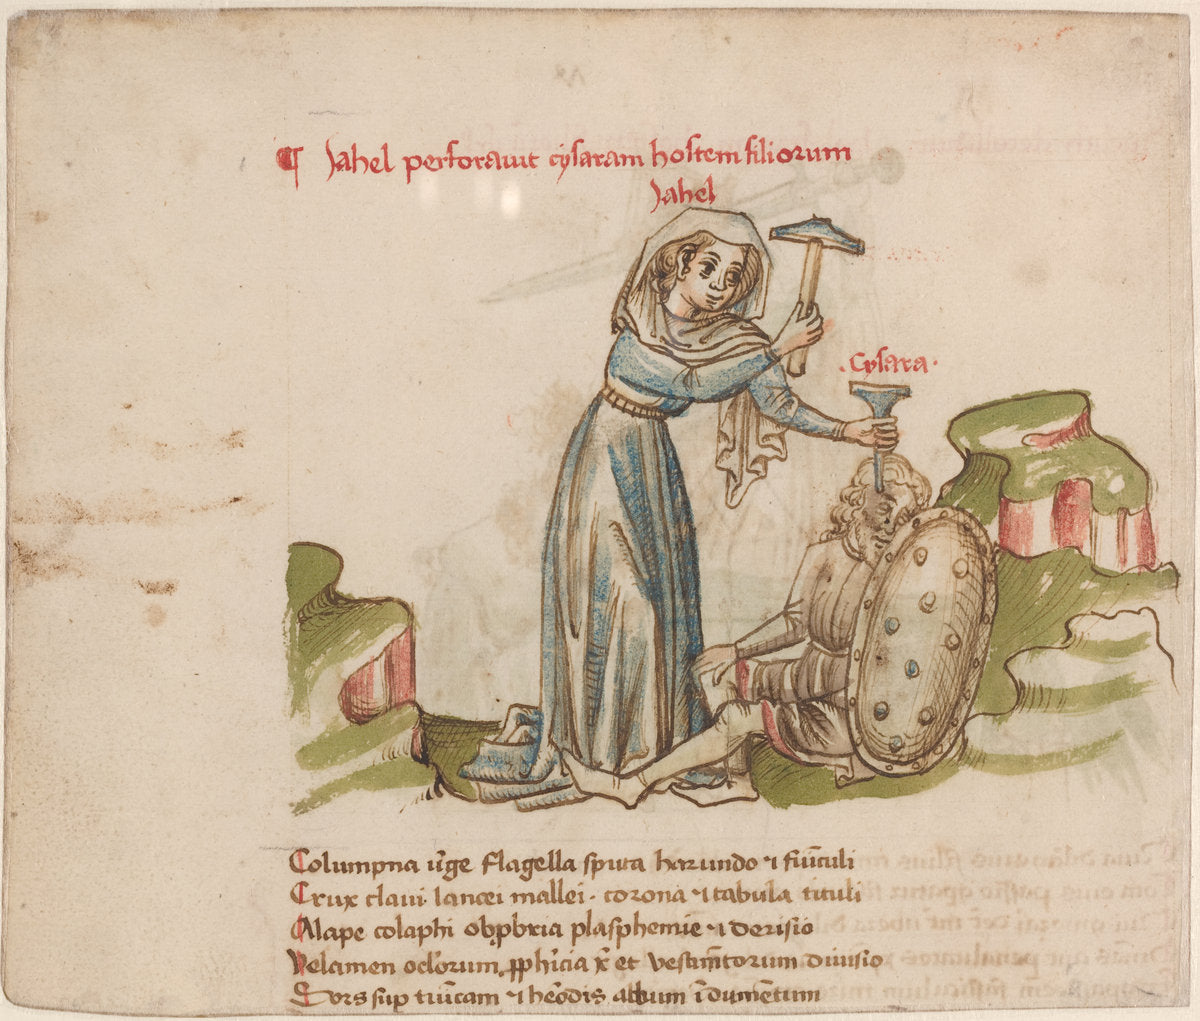 ¶ Jahel perforavit cysaram hostem filiorum
Jahel
· Cysara ·
Columpna v̄ge flagella sputa harundo ⁊ fūiculi
Crux claui lancei mallei · corona ⁊ tabula tituli
Alape colaphi obp̱bria plasphemie ⁊ derisio
Velamen oclorum ꝓph̄icia xͥ et vestim̄torum diuisio
Sors sup̱ tuīcam ⁊ he᷑odis album īdumētum